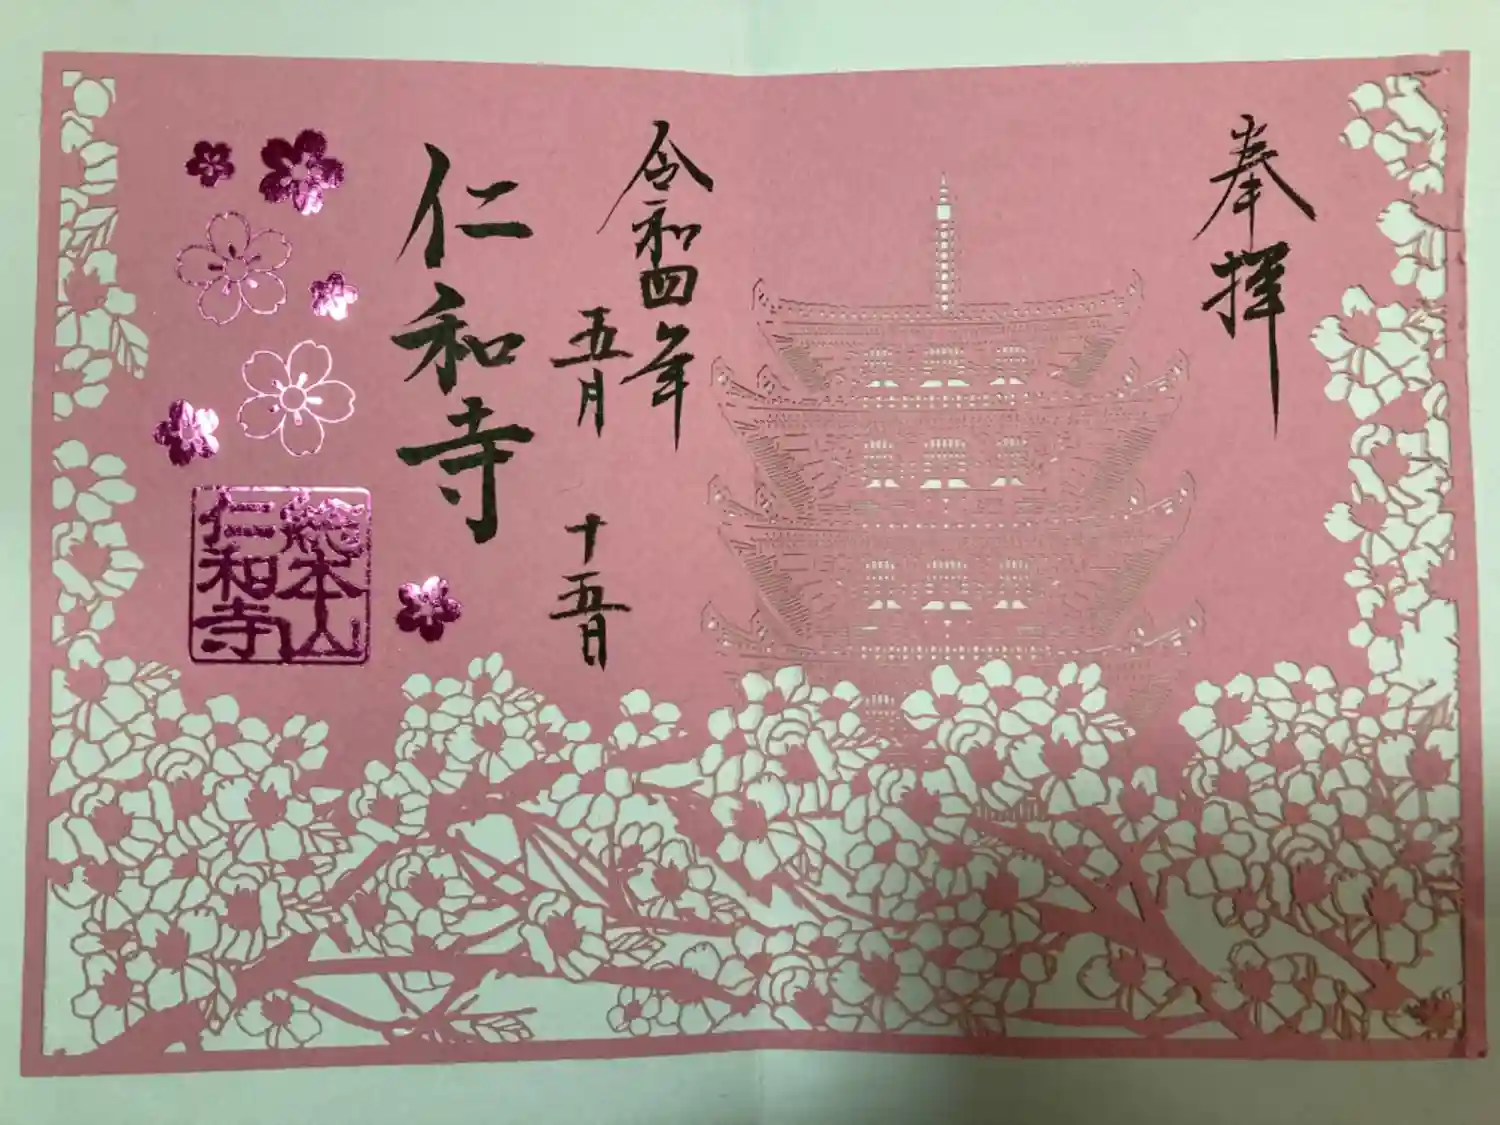 奉拝
令和四年
五月十五日
仁和寺
総本山
仁和寺